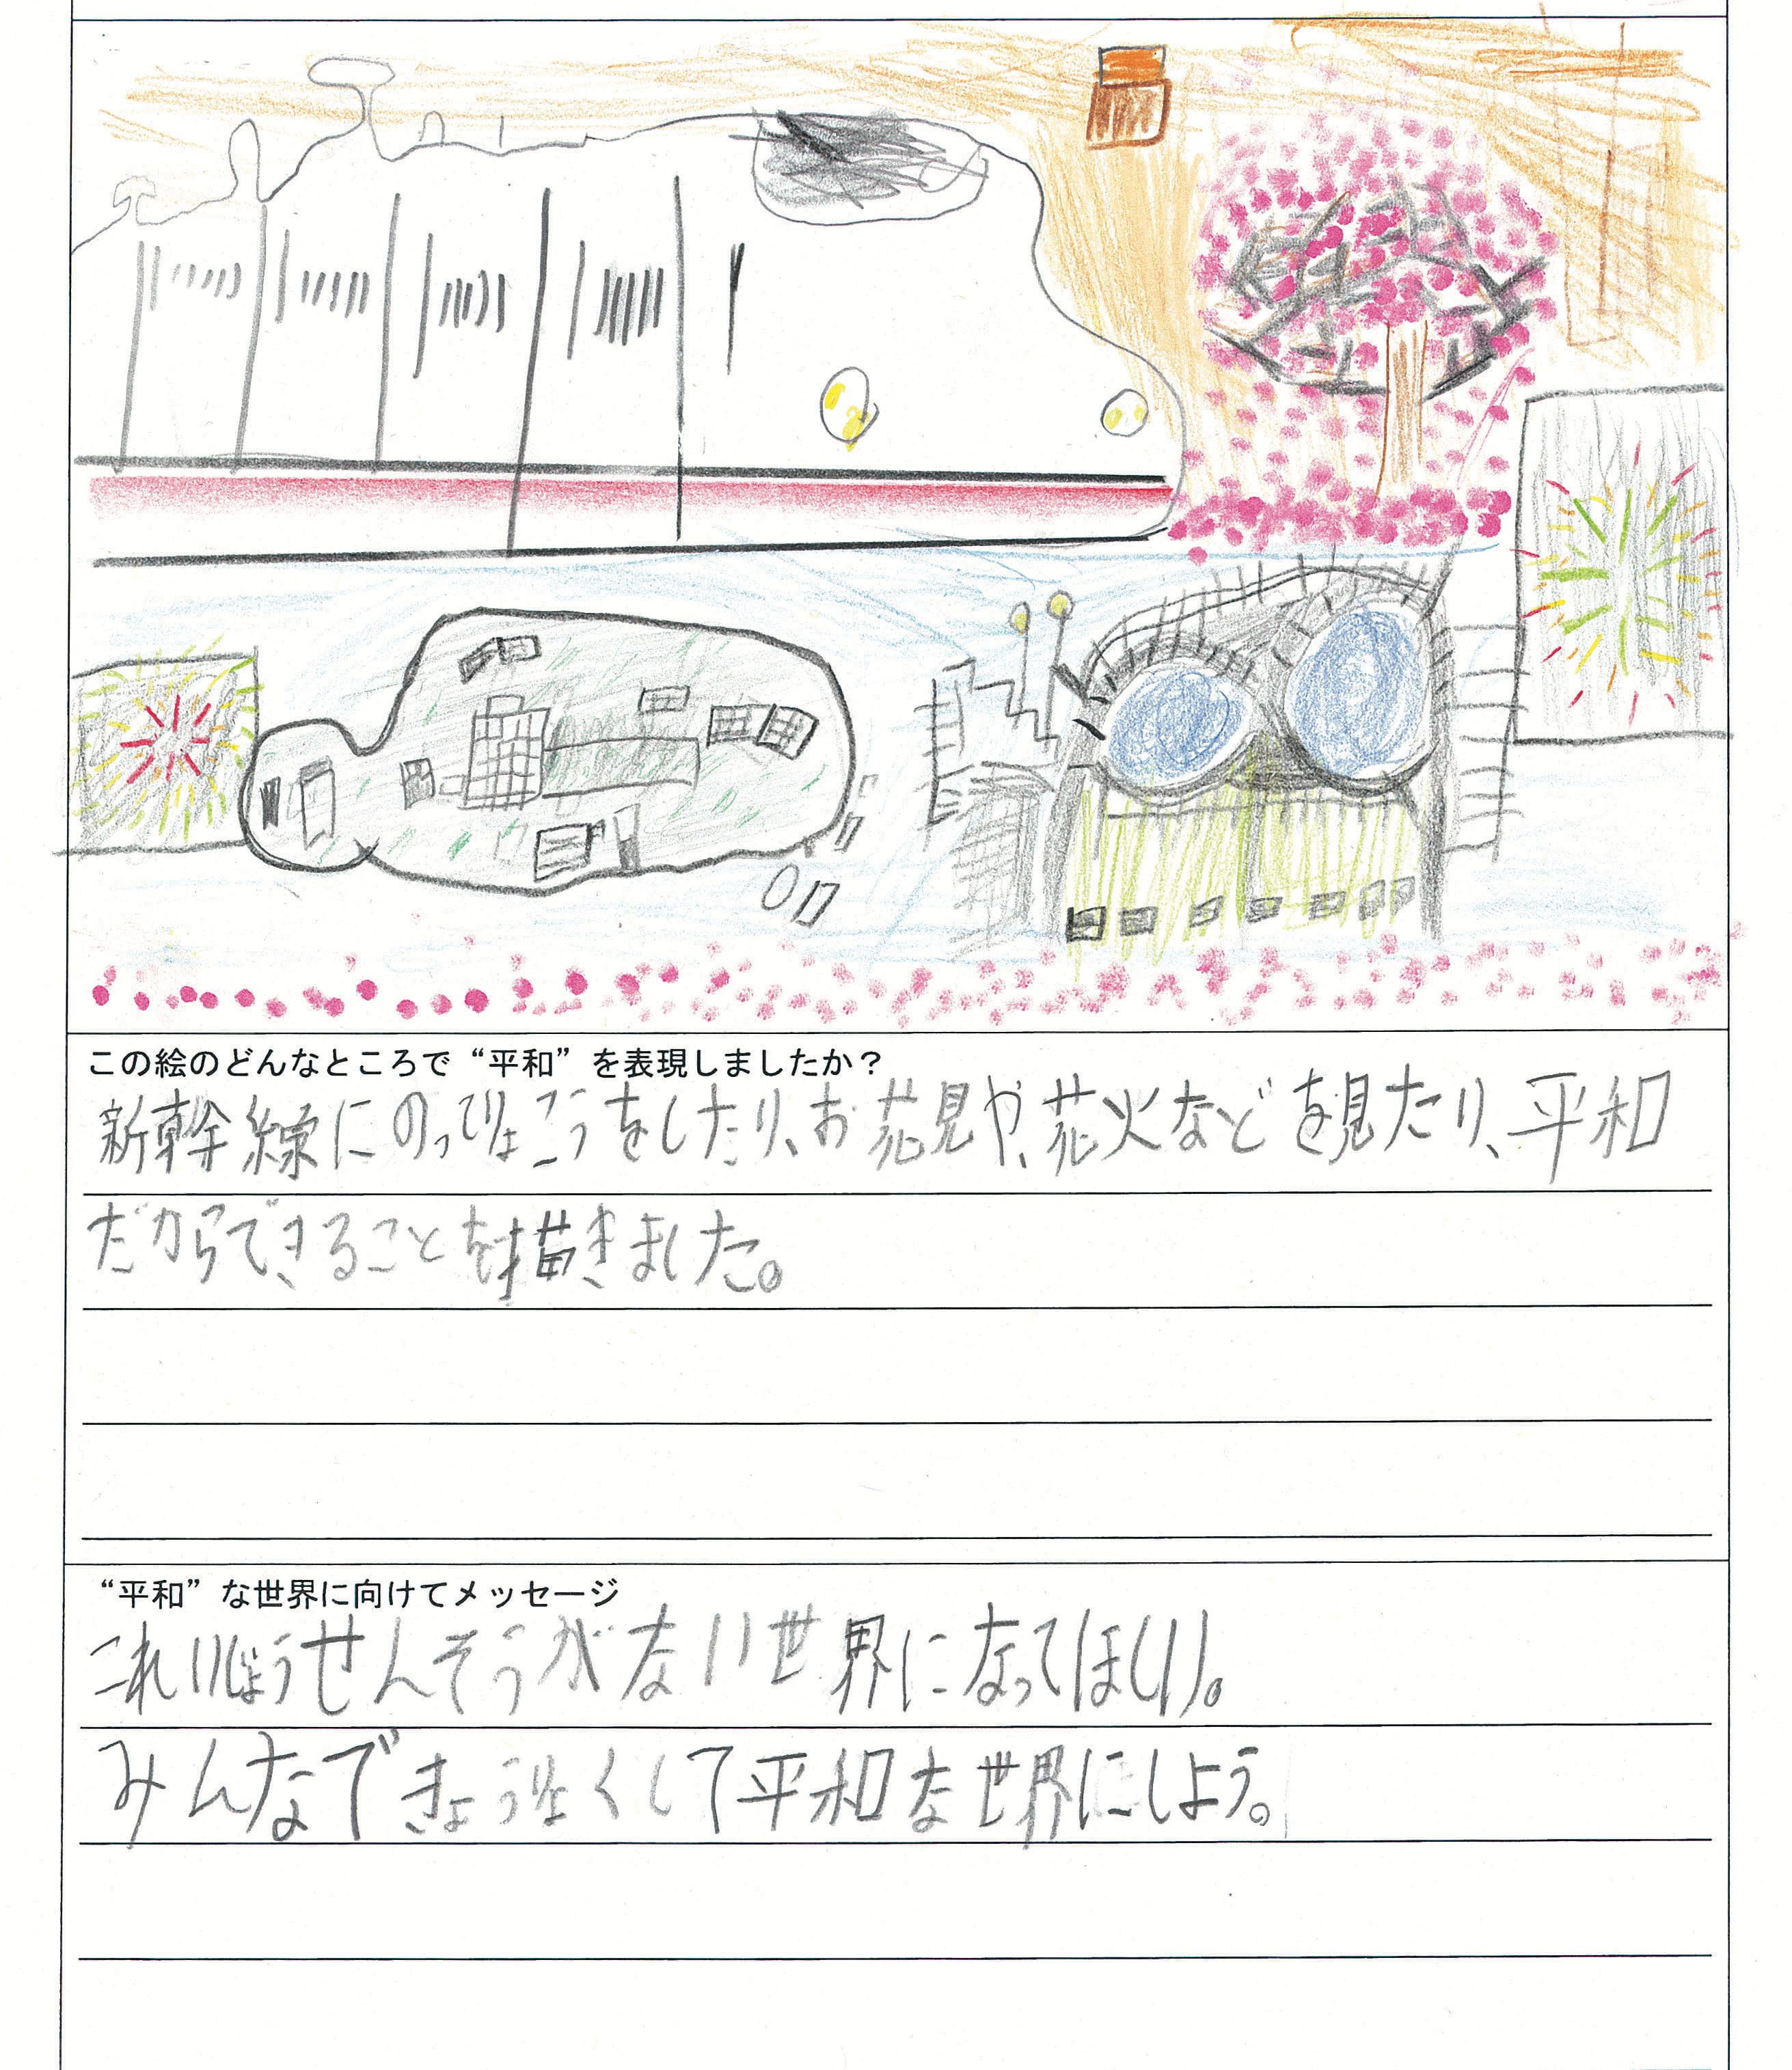 この絵のどんなところで“平和”を表現しましたか？
新幹線にのってりょこうをしたり、お花見や、花火などを見たり、平和
だからできることを描きました。
“平和”な世界に向けてメッセージ
これいじょうせんそうがない世界になってほしい。
みんなできょうりょくして平和な世界にしよう。